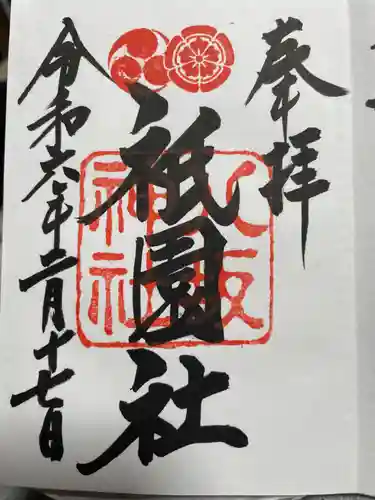 奉拝
八坂神社
祇園社
令和六年二月十七日